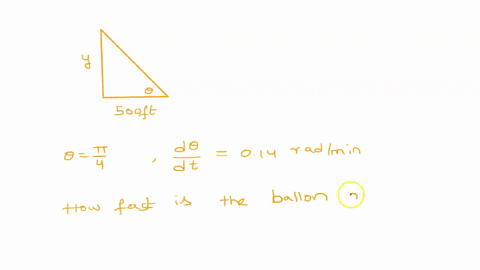 y
θ
500ft
θ = π/4 , dθ/dt = 0.14 rad/min
How fast is the ballon